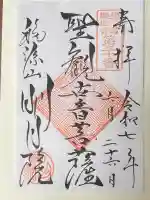 奉拝
令和七年
六月二十六日
聖観世音菩薩
福源山
明月院